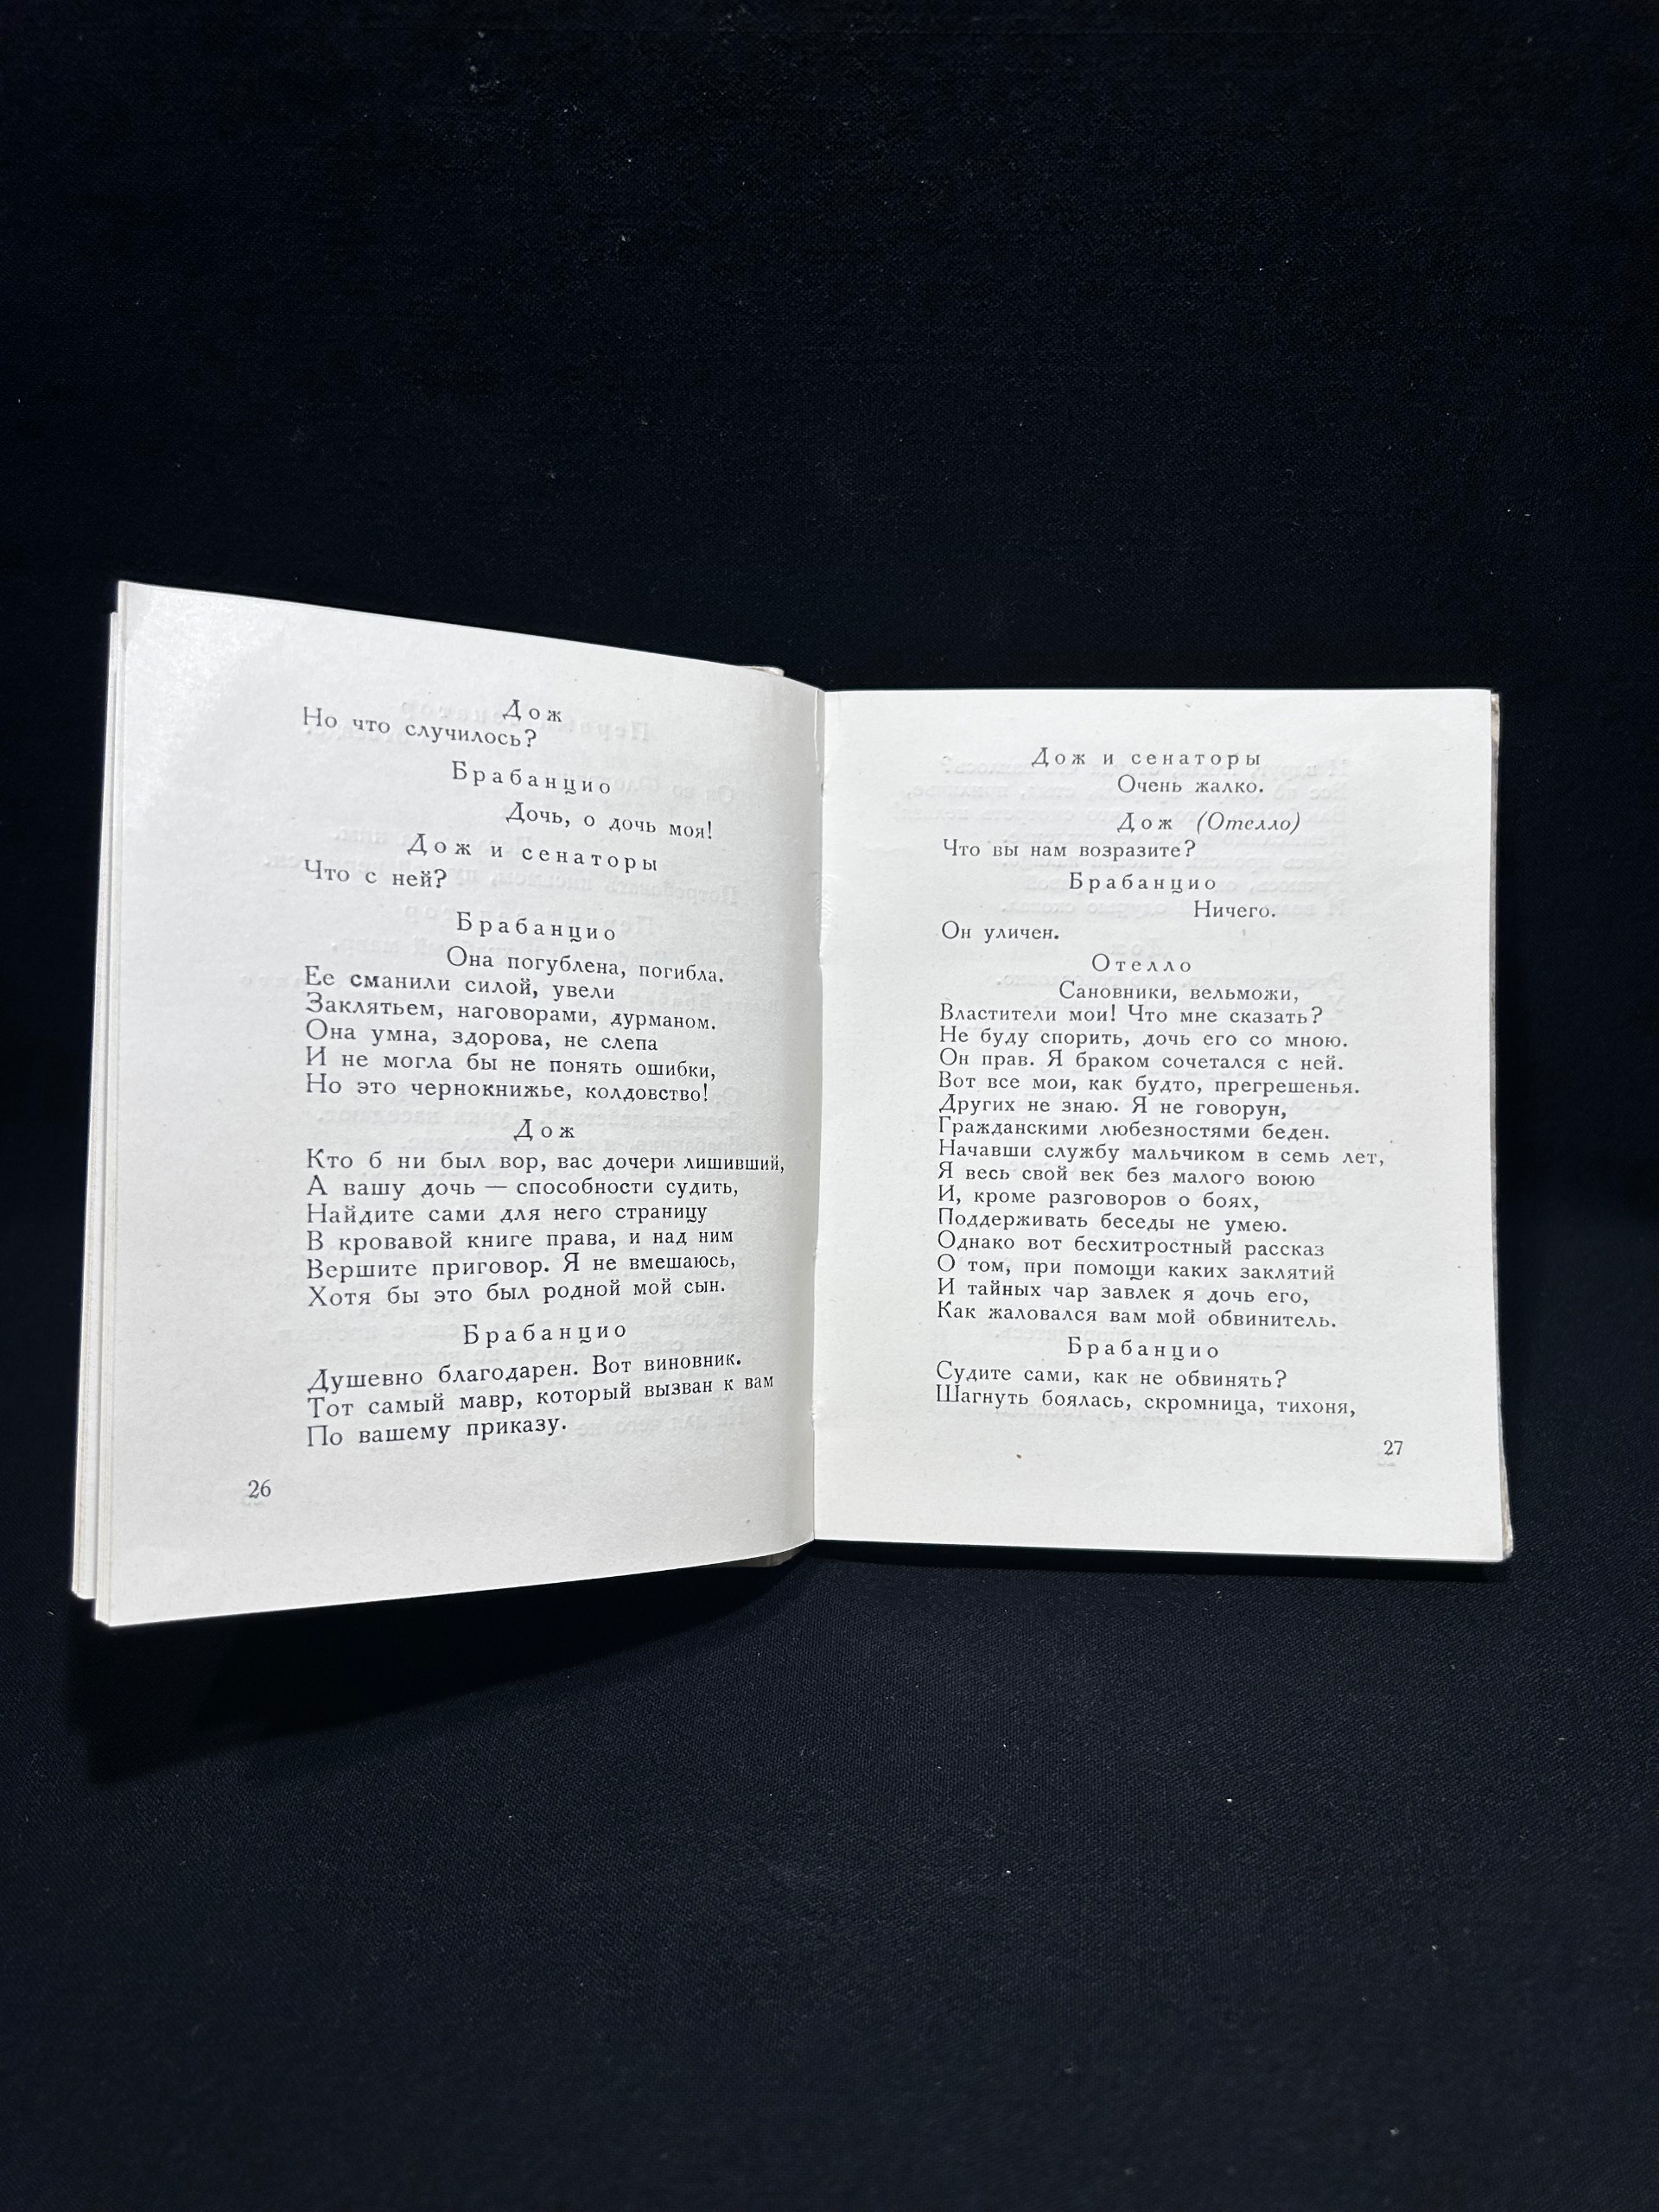 Дож
Но что случилось?
Брабанцио
Дочь, о дочь моя!
Дож и сенаторы
Что с ней?
Брабанцио
Она погублена, погибла.
Ее сманили силой, увели
Заклятьем, наговорами, дурманом.
Она умна, здорова, не слепа
И не могла бы не понять ошибки,
Но это чернокнижье, колдовство!
Дож
Кто б ни был вор, вас дочери лишивший,
А вашу дочь — способности судить,
Найдите сами для него страницу
В кровавой книге права, и над ним
Вершите приговор. Я не вмешаюсь,
Хотя бы это был родной мой сын.
Брабанцио
Душевно благодарен. Вот виновник.
Тот самый мавр, который вызван к вам
По вашему приказу.
26
Дож и сенаторы
Очень жалко.
Дож (Отелло)
Что вы нам возразите?
Брабанцио
Ничего.
Он уличен.
Отелло
Сановники, вельможи,
Властители мои! Что мне сказать?
Не буду спорить, дочь его со мною.
Он прав. Я браком сочетался с ней.
Вот все мои, как будто, прегрешенья.
Других не знаю. Я не говорун,
Гражданскими любезностями беден.
Начавши службу мальчиком в семь лет,
Я весь свой век без малого воюю
И, кроме разговоров о боях,
Поддерживать беседы не умею.
Однако вот бесхитростный рассказ
О том, при помощи каких заклятий
И тайных чар завлек я дочь его,
Как жаловался вам мой обвинитель.
Брабанцио
Судите сами, как не обвинять?
Шагнуть боялась, скромница, тихоня,
27